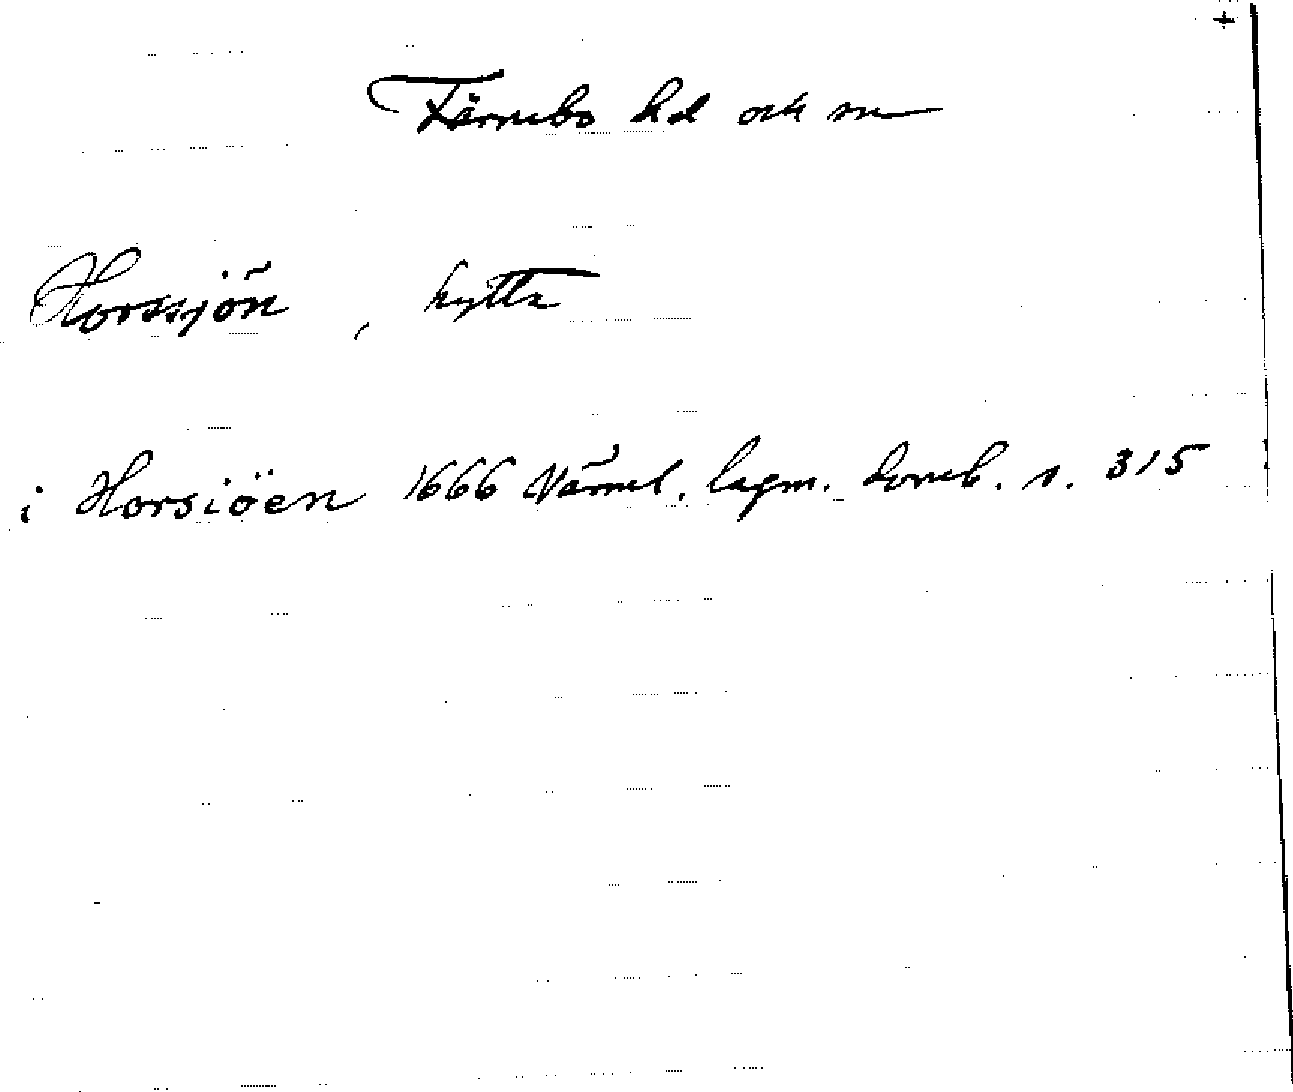 +
Färnebo hd och sn
Horssjön, hytta
i Horsiöen 1666 Värml. lagm. domb. s. 315